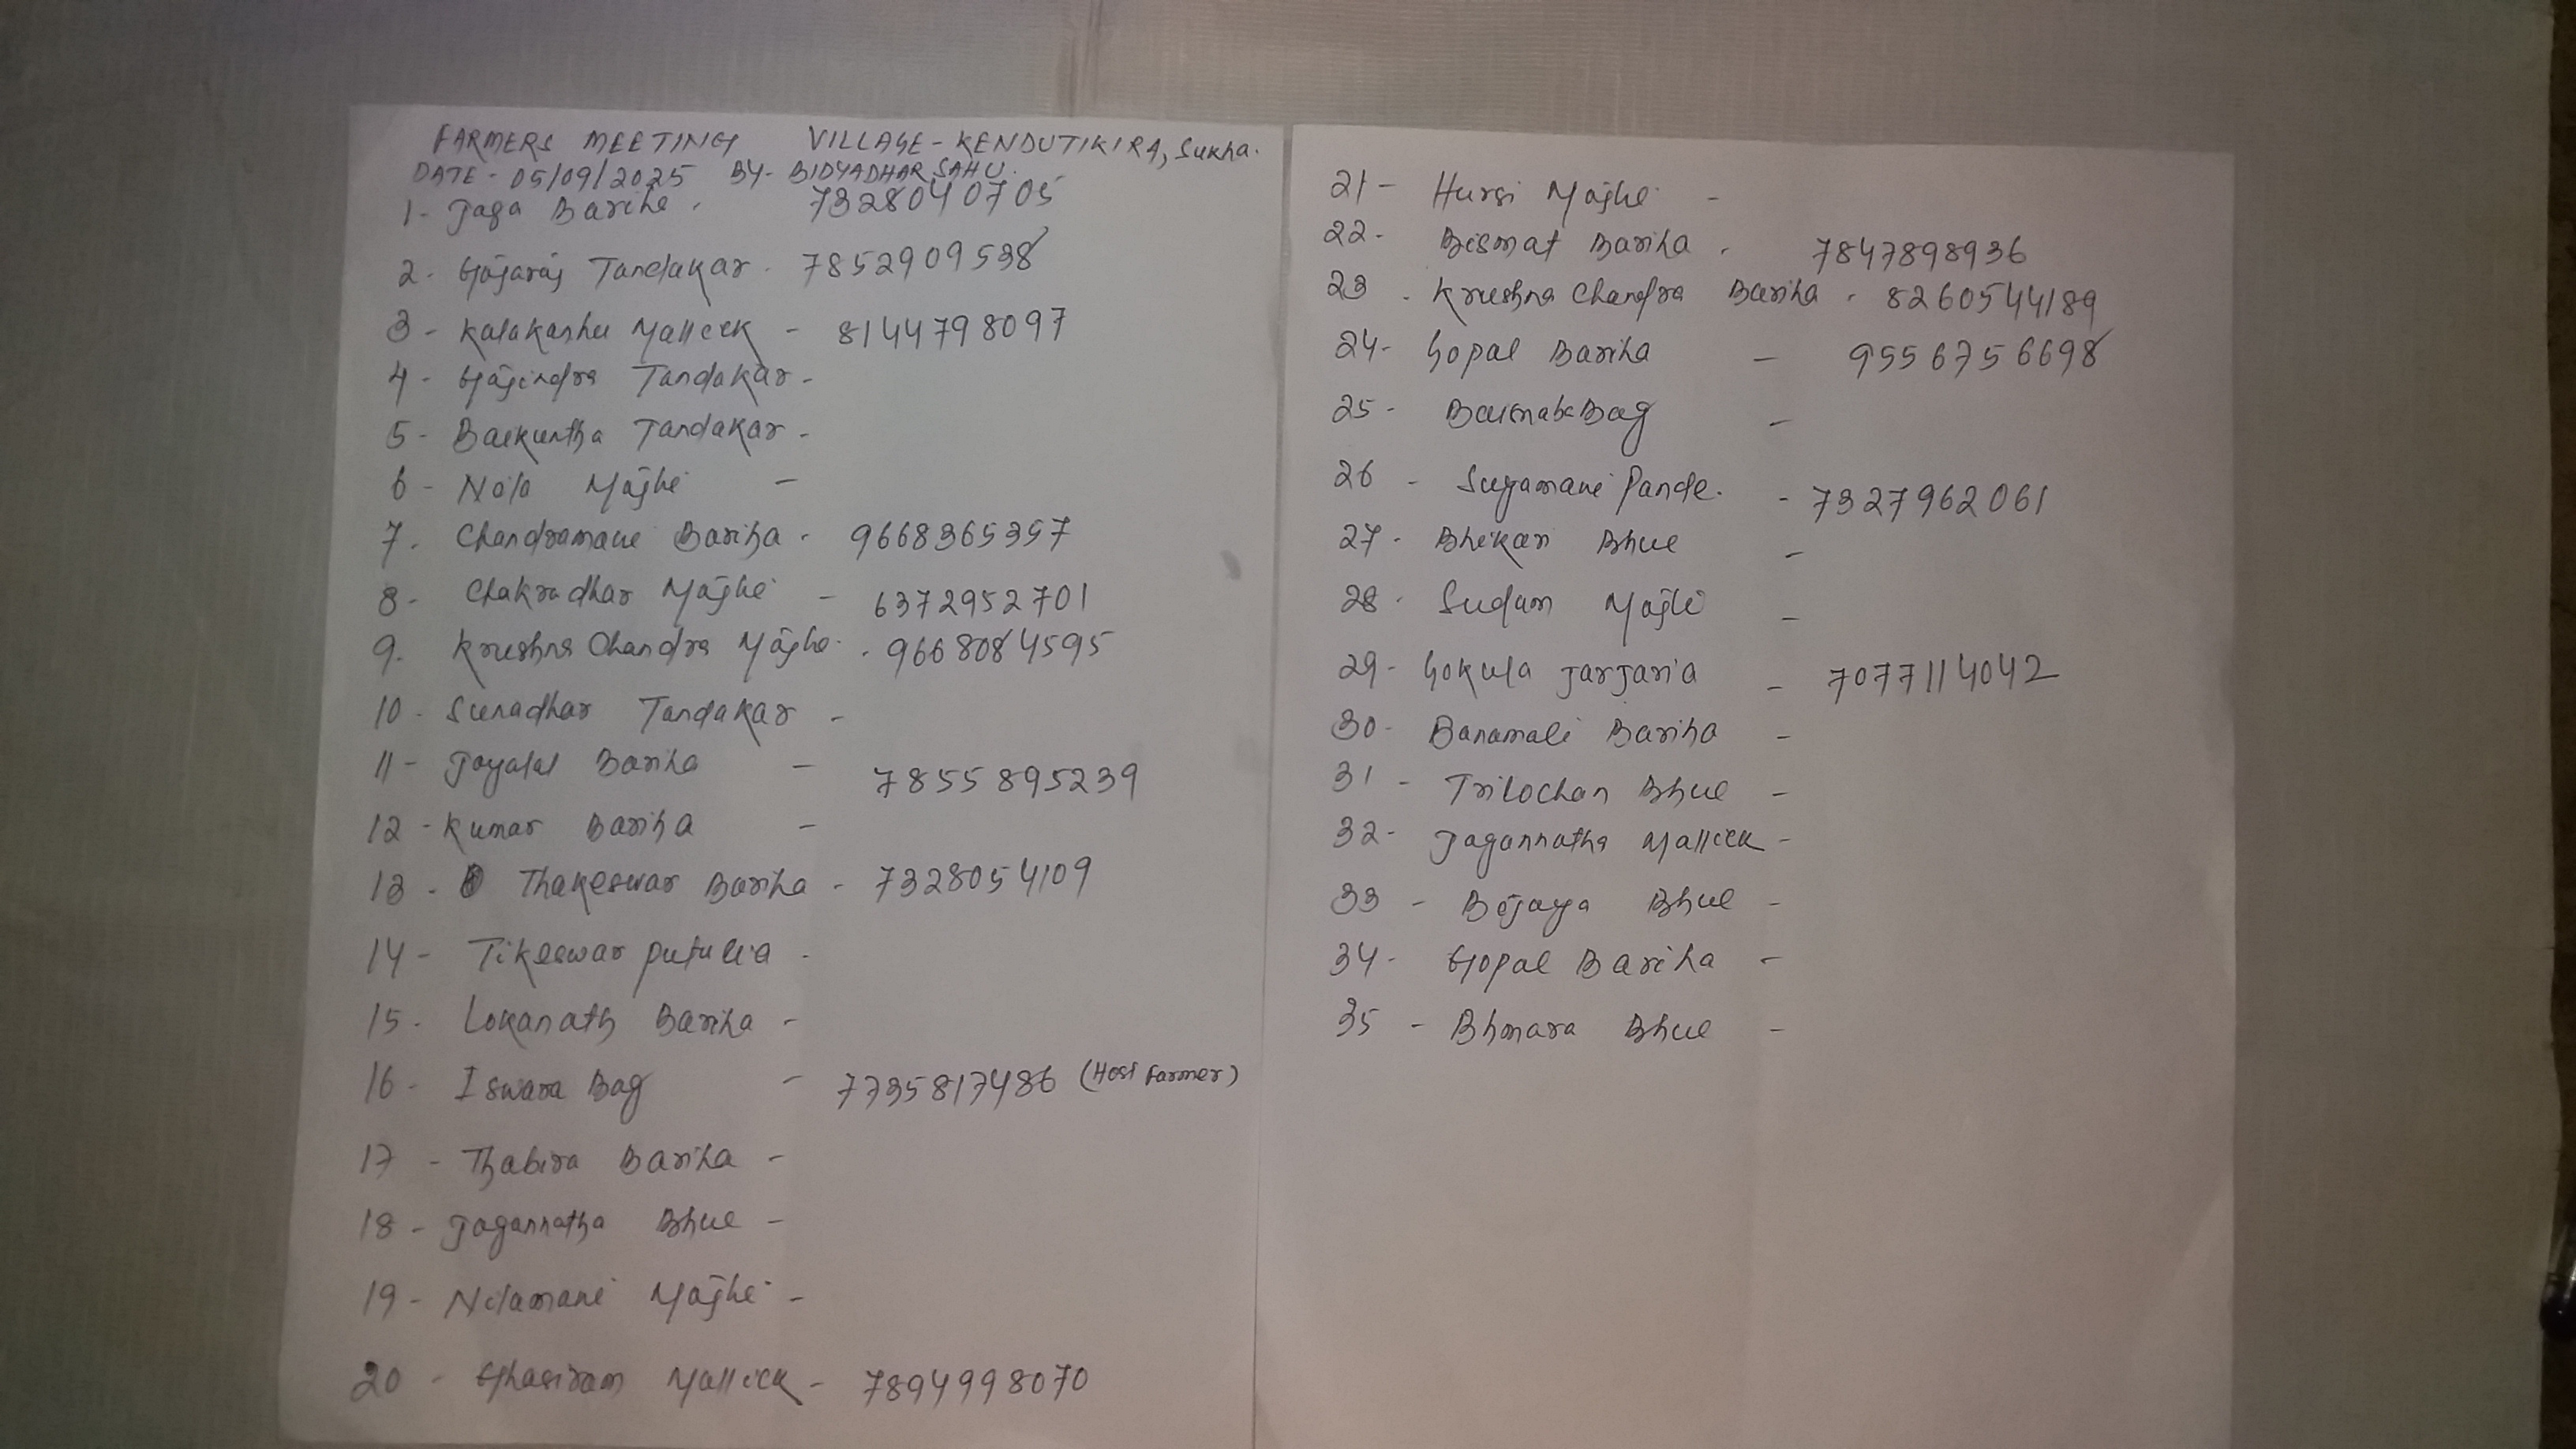 FARMERS MEETING VILLAGE - KENDUTIKIRA, Sukha.
DATE - 05/09/2025 BY- BIDYADHAR SAHU.
1- Jaga Bariha. 7328040705
2- Gajaraj Tandakar - 7852909538
3- Kalakanhu Mallick - 8144798097
4- Gajindra Tandakar -
5- Baikuntha Tandakar -
6- Nola Majhi -
7- Chandramani Bariha - 9668365357
8- Chakradhar Majhi - 6372952701
9. Krushna Chandra Majhi - 9668084595
10- Sunadhar Tandakar -
11- Jayalal Bariha - 7855895239
12- Kumar Bariha -
13- Thakeswar Bariha - 7328054109
14- Tikeswar Putulia -
15- Lokanath Bariha -
16- Iswara Bag - 7735817486 (Host Farmer)
17- Thabira Bariha -
18- Jagannatha Bhue -
19- Nilamani Majhi -
20- Ghasiram Mallick - 7894998070
21- Hursi Majhi -
22- Bismat Bariha - 7847898936
23- Krushna Chandra Bariha - 8260544189
24- Gopal Bariha - 9556756698
25- Bag -
26- Suyamani Pande. - 7327962061
27- Bhikari Bhue -
28- Sudam Majhi -
29- Gokula Jarjaria - 7077114042
30- Banamali Bariha -
31- Trilochan Bhue -
32- Jagannatha Mallick -
33- Bijaya Bhue -
34- Gopal Bariha -
35- Bhmara Bhue -